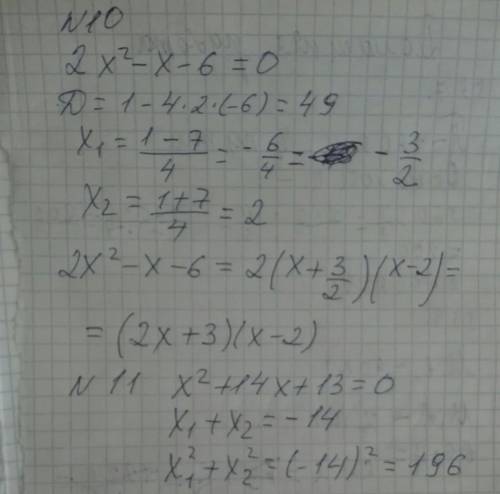 N10
2x² - x - 6 = 0
D = 1 - 4·2·(-6) = 49
x₁ = (1-7)/4 = -6/4 = -3/2
x₂ = (1+7)/4 = 2
2x² - x - 6 = 2(x + 3/2)(x-2) =
= (2x+3)(x-2)
N 11 x² + 14x + 13 = 0
x₁ + x₂ = -14
x₁² + x₂² = (-14)² = 196